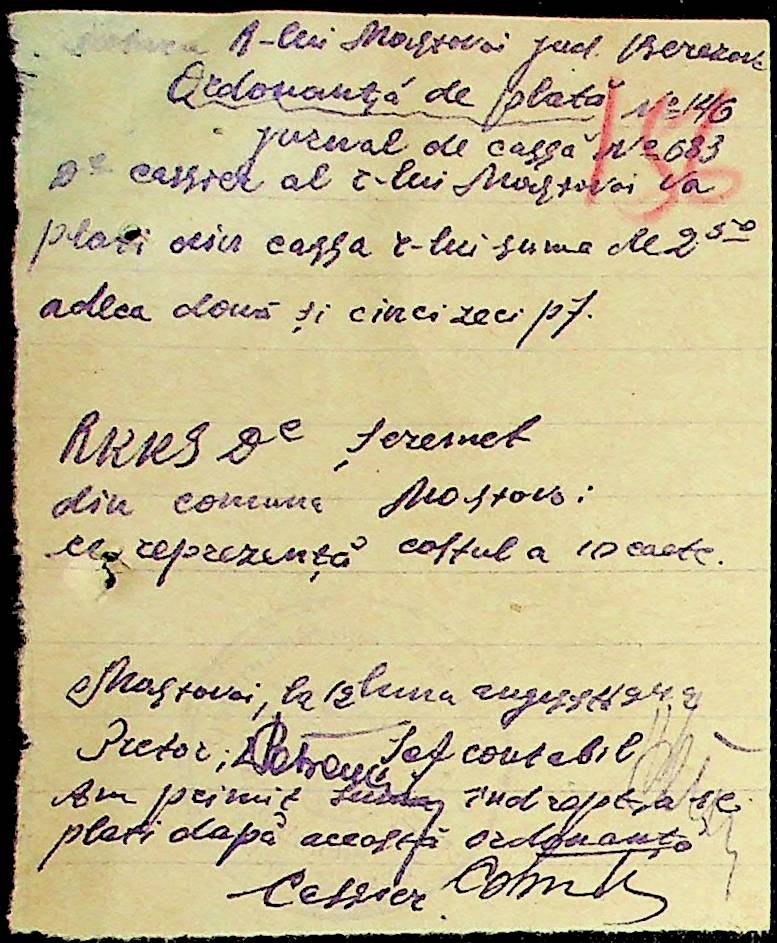 R-lui Mostovoi jud. Berezov
Ordonanță de plată № 146
jurnal de cassă № 683
156
Dl cassier al r-lui Mostovoi va
plati din cassa r-lui suma de 2 50
adeca două și cincizeci pf.
Dl Șeremet
din comuna Mostovoi
ce reprezență costul a 10 caete.
Mostovoi, la 12 luna august 1942
Pretor, Șef contabil
Am primit suma indrapta se
plati dapă aceostă ordonanță
Cassier